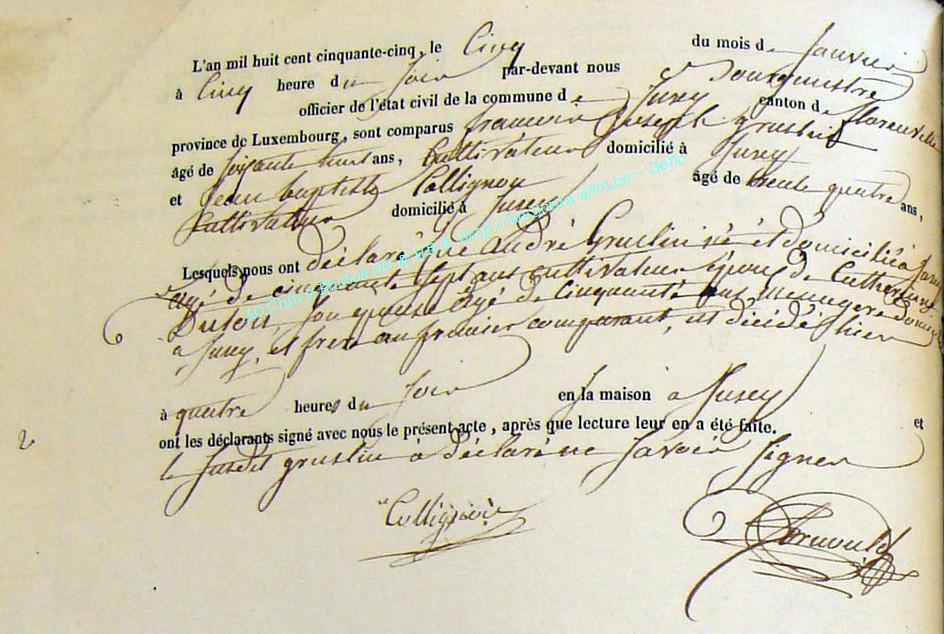 L'an mil huit cent cinquante-cinq, le Cinq du mois de Janvier
à Cinq heure du Soir par-devant nous Bourguestre
officier de l'état civil de la commune de Jusey canton de florenville
province de Luxembourg, sont comparus françois Joseph Gruslin
âgé de soixante huit ans, Cultivateur domicilié à Jusey
et Jean baptiste Collignon âgé de trente quatre ans,
Cultivateur domicilié à Jusey
Lesquels nous ont déclaré que André Gruslin né et domicilié à
agé de cinquante Sept ans cultivateur Epoux de Catherine
Dutoit, son epouse agé de Cinquante ans menagere
a Jusey, et frere au premier comparant, est décidé hier
à quatre heures du Soir en la maison à Jusey et
ont les déclarants signé avec nous le présent acte, après que lecture leur en a été faite.
le susdit gruslin à déclaré ne savoir Signer
Collignon